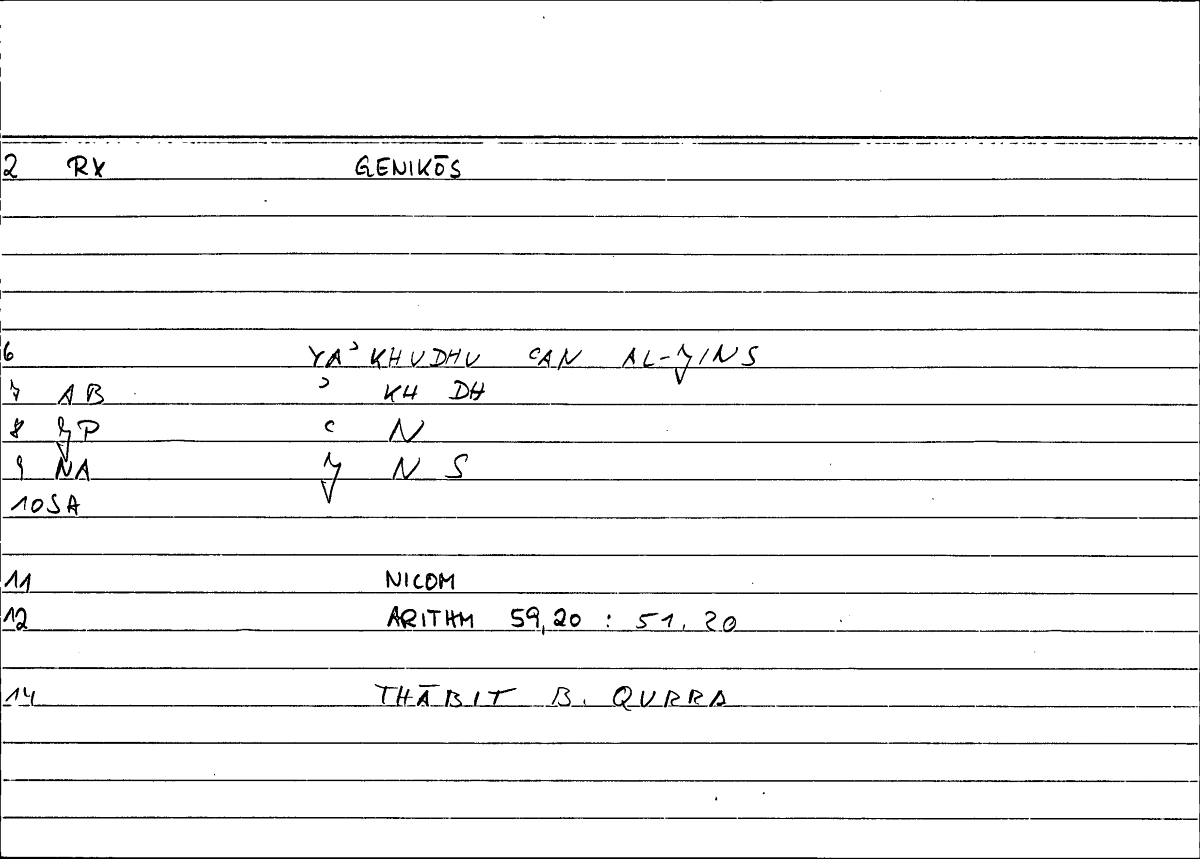 2 RX GENIKŌS
6 YAʾKHUDHU ʿAN AL-J̌INS
7 AB ʾ KH DH
8 J̌P ʿ N
9 NA J̌ N S
10 SA
11 NICOM
12 ARITHM 59,20 : 51.20
14 THĀBIT B. QURRA